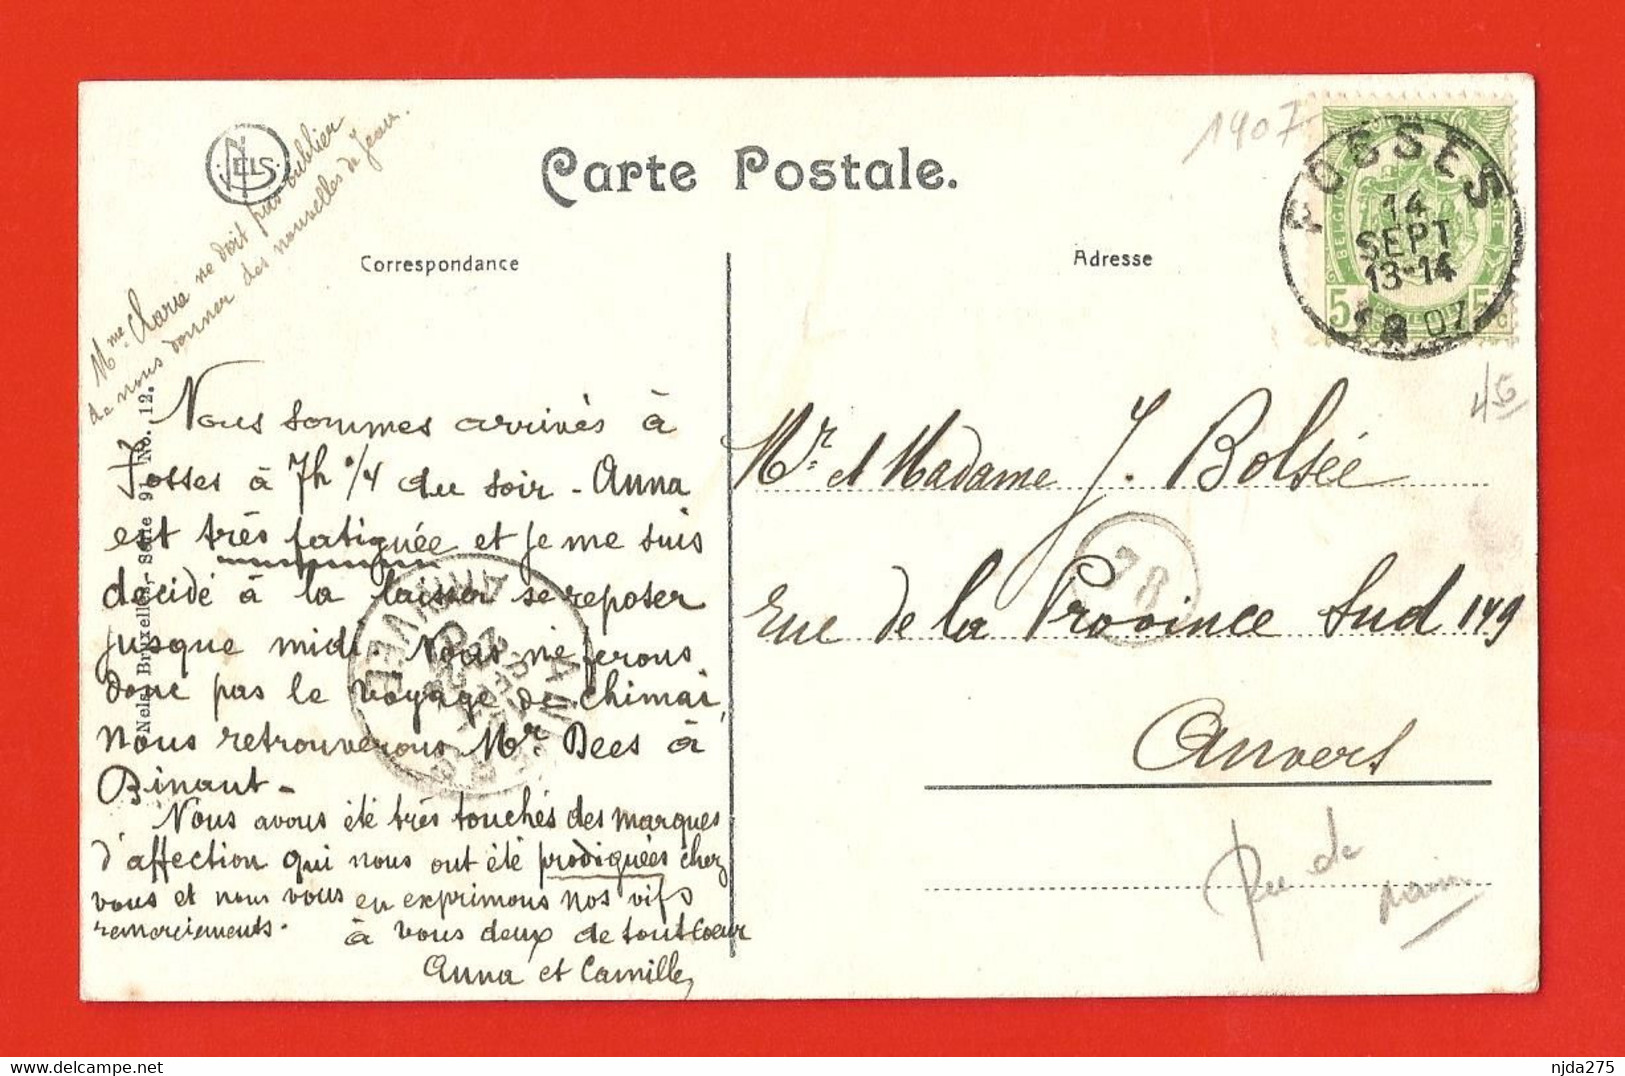 NELS
Carte Postale.
Correspondance
Adresse
1907
FOSSES
14
SEPT
13-14
07
BELGIQUE
5
5
Mme Claria ne doit pas oublier
de nous donner des nouvelles de Jean.
Nels, Bruxelles, Série 9, No. 12.
Nous sommes arrivés à
Fosses à 7h 1/4 du soir - Anna
est très fatiguée et je me suis
décidé à la laisser se reposer
jusque midi. Nous ne ferons
donc pas le voyage de Chimai,
Nous retrouverons Mr. Dees à
Dinant -
Nous avons été très touchés des marques
d'affection qui nous ont été prodiguées chez
vous et nous vous en exprimons nos vifs
remerciements. à vous deux de tout coeur
Anna et Camille
Mr. et Madame J. Bolsée
Rue de la Province Sud 149
Anvers
78
ANTWERPEN
ANVERS
Rue de
njda275